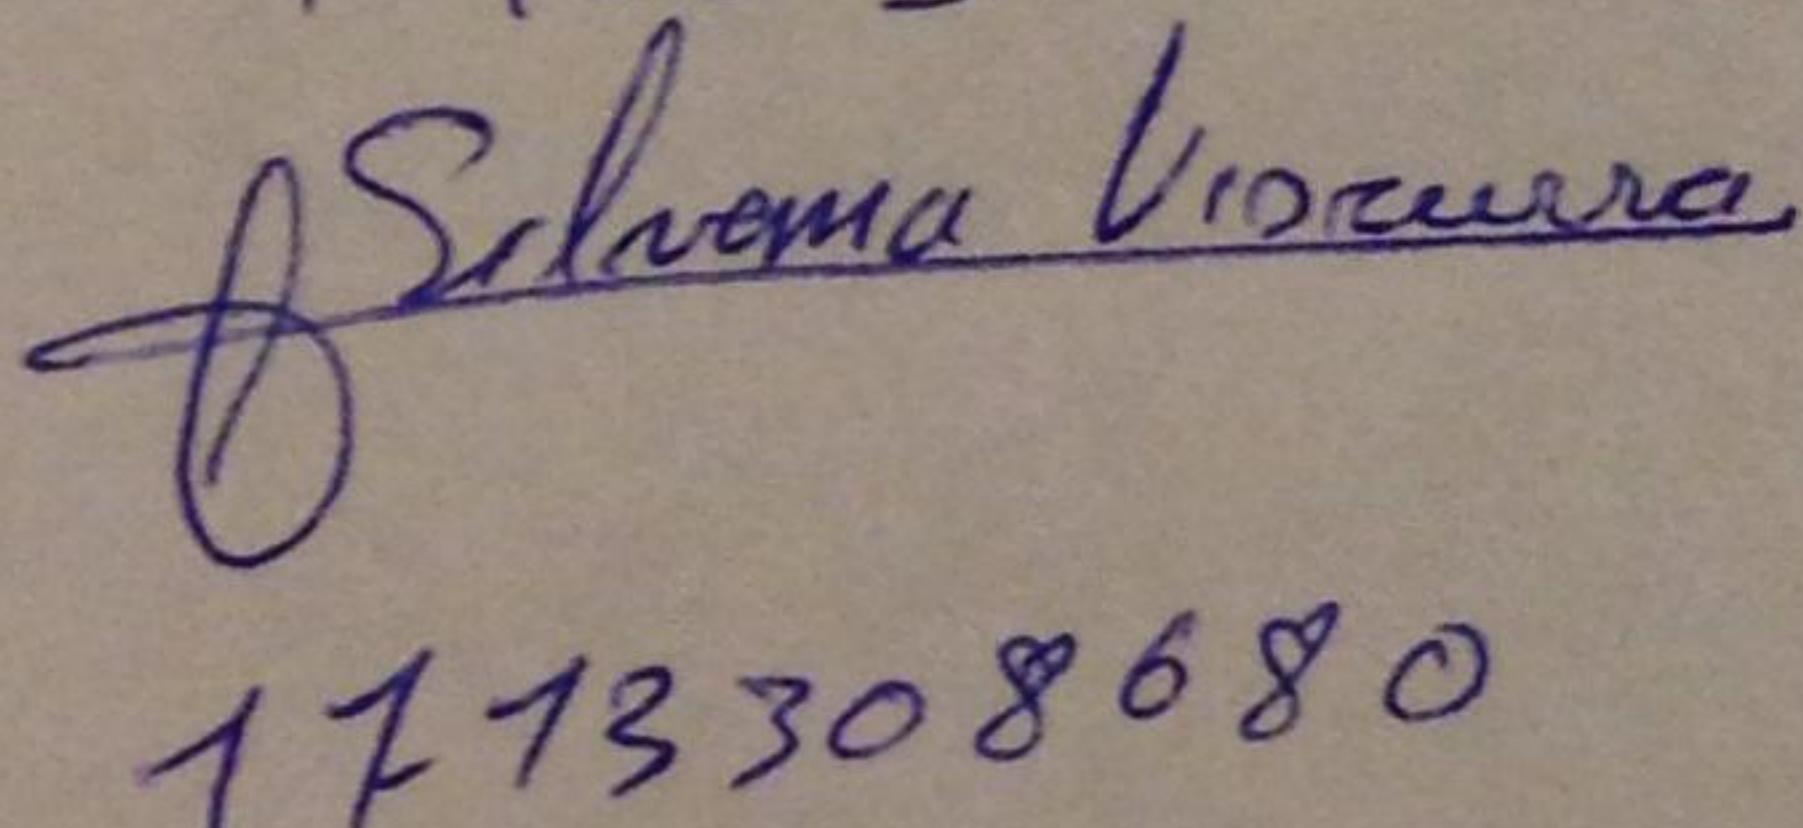 Silvana Vizcarra
1713308680